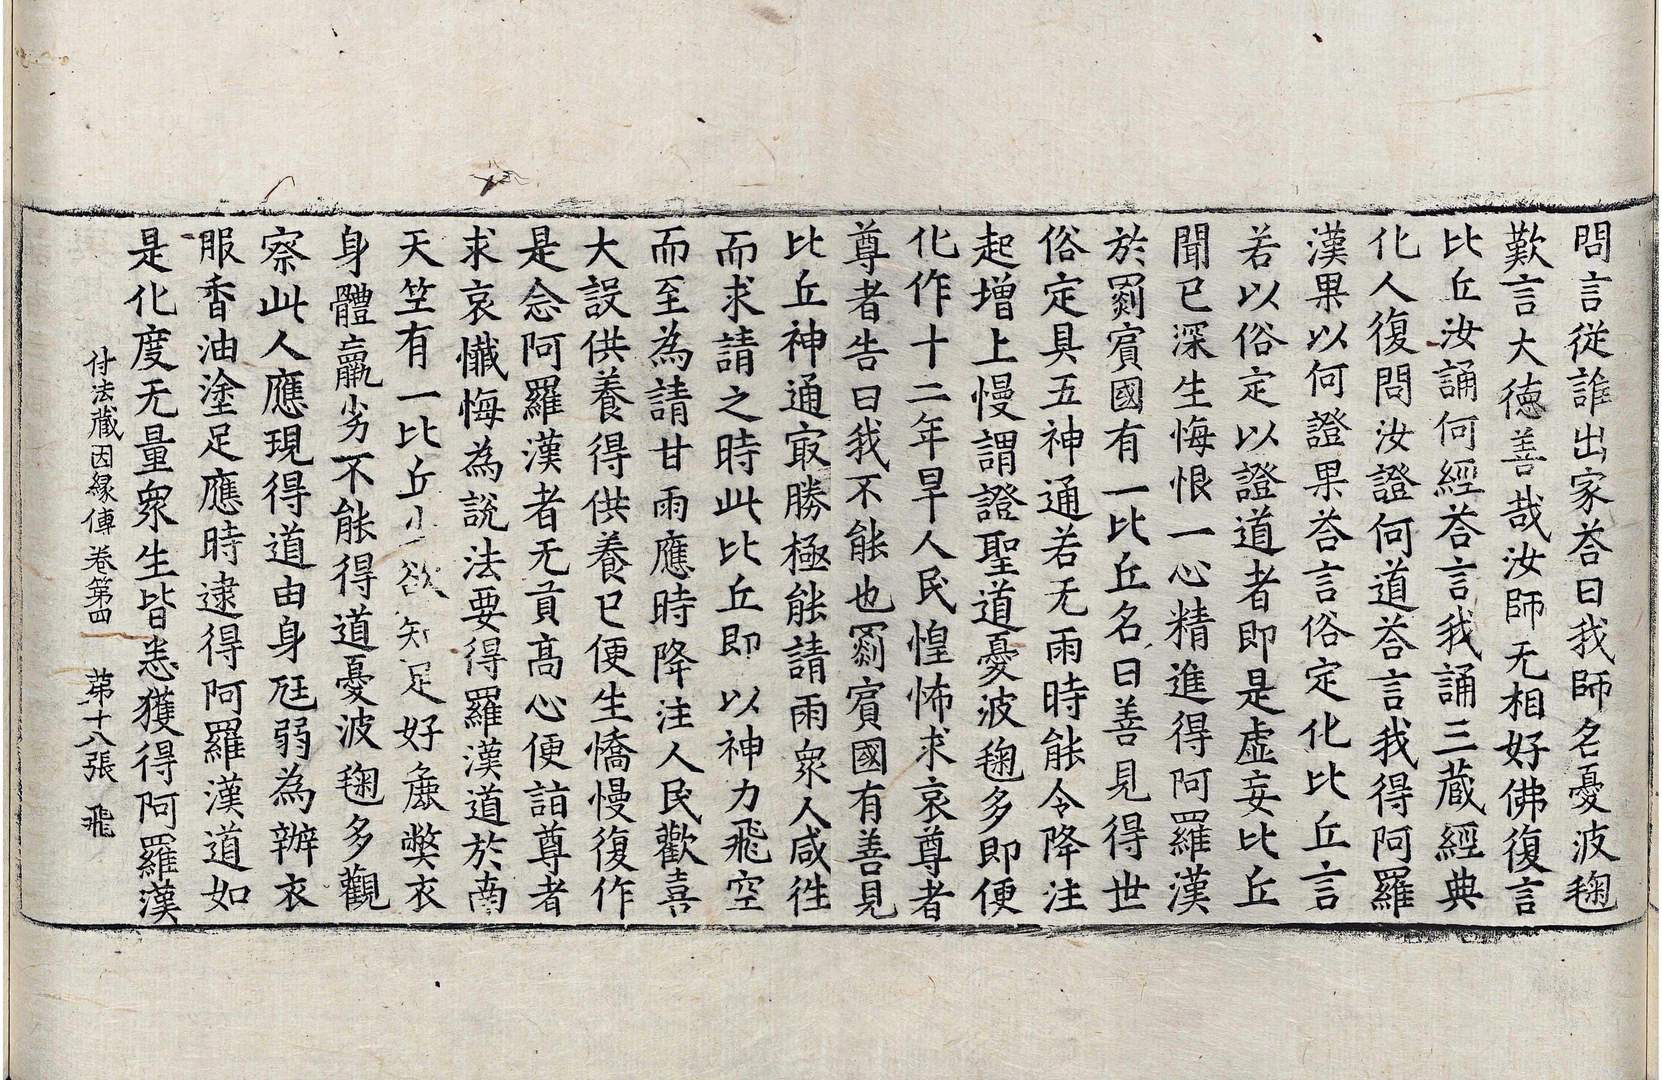 問言從誰出家荅曰我師名憂波毱
歎言大德善哉汝師无相好佛復言
比丘汝誦何經荅言我誦三藏經典
化人復問汝證何道荅言我得阿羅
漢果以何證果荅言俗定化比丘言
若以俗定以證道者即是虛妄比丘
聞已深生悔恨一心精進得阿羅漢
於罽賓國有一比丘名曰善見得世
俗定具五神通若无雨時能令降注
起增上慢謂證聖道憂波毱多即便
化作十二年旱人民惶怖求哀尊者
尊者告曰我不能也罽賓國有善見
比丘神通冣勝極能請雨衆人咸徃
而求請之時此比丘即以神力飛空
而至為請甘雨應時降注人民歡喜
大設供養得供養已便生憍慢復作
是念阿羅漢者无貢高心便詣尊者
求哀懺悔為說法要得羅漢道於南
天竺有一比丘少欲知足好麁弊衣
身體羸劣不能得道憂波毱多觀
察此人應現得道由身尫弱為辦衣
服香油塗足應時逮得阿羅漢道如
是化度无量衆生皆悉獲得阿羅漢
付法藏因緣傳卷第四 第十八張 飛